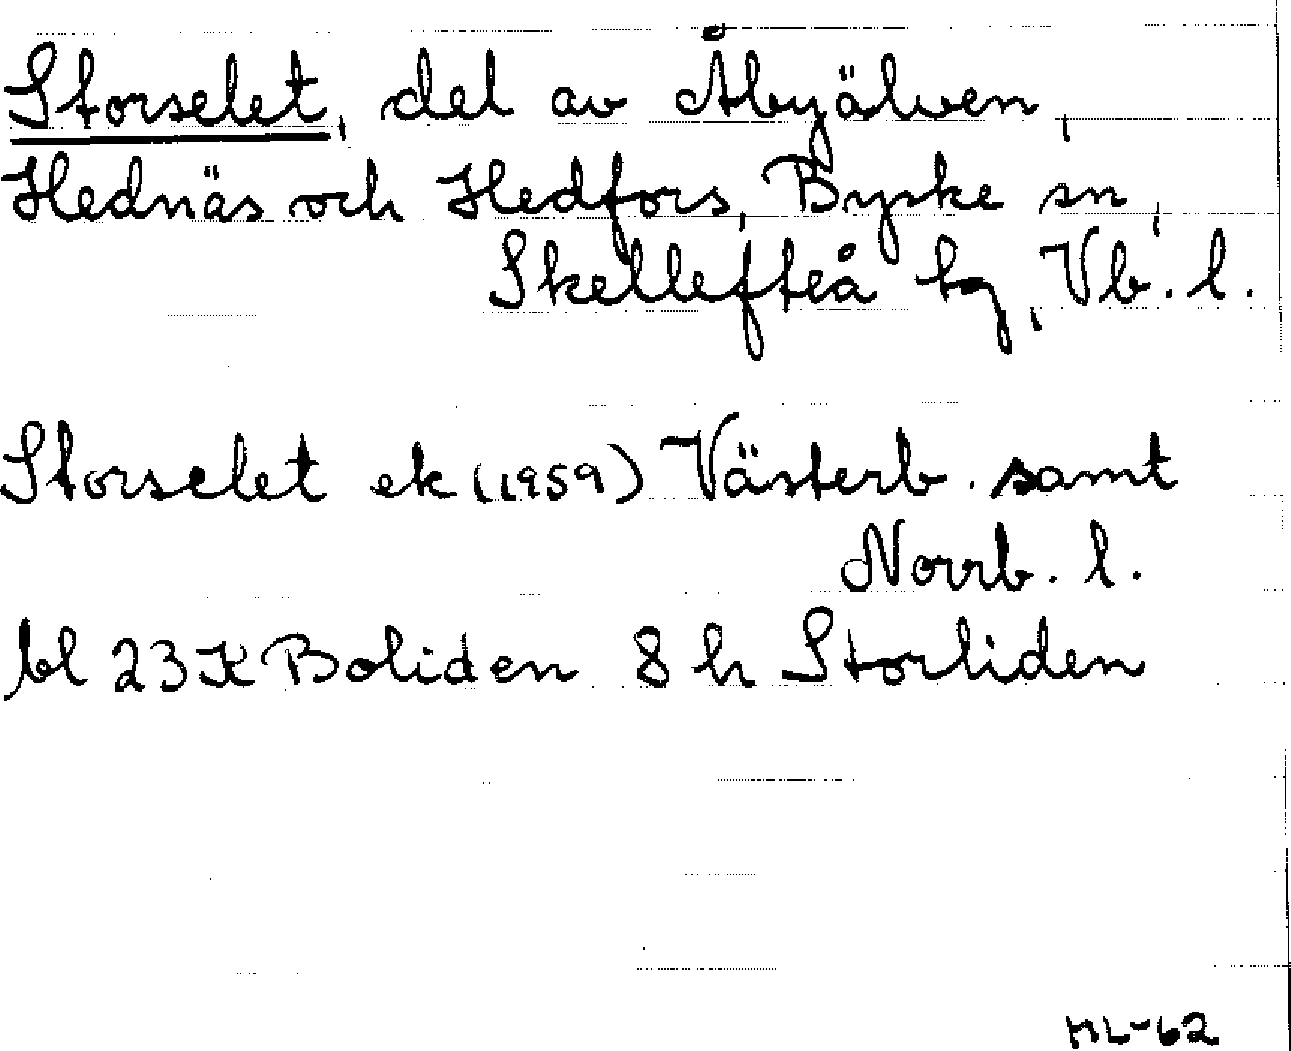 Storselet, del av Åbyälven,
Hednäs och Hedfors, Byske sn,
Skellefteå tg, Vb. l.
Storselet ek (1959) Västerb. samt
Norrb. l.
bl 23 K Boliden 8 h Storliden
ML-62